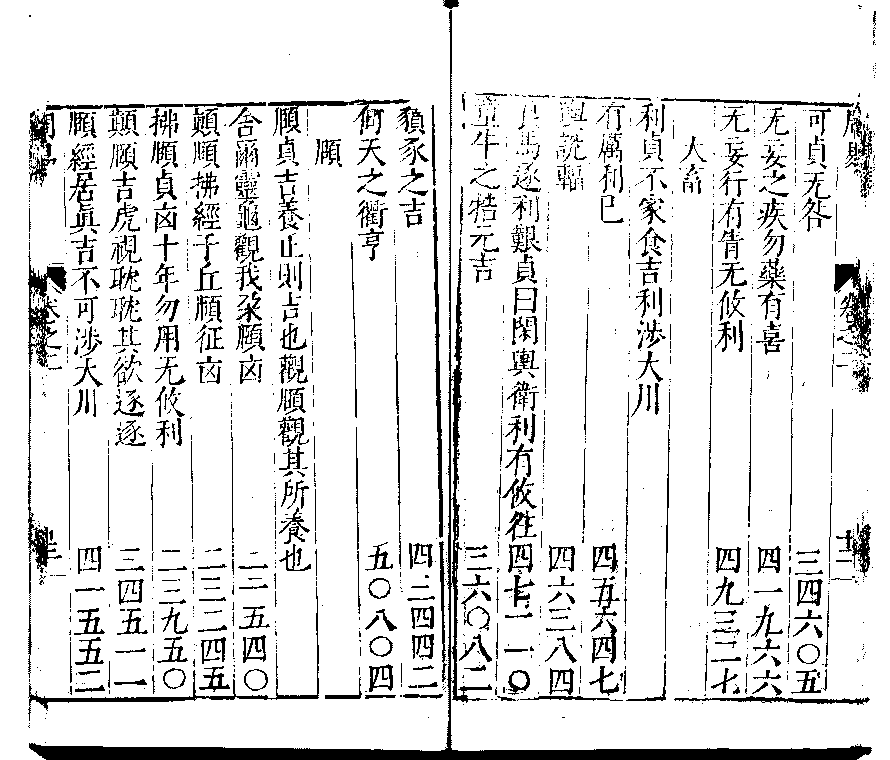 可貞无咎 三四六〇五
无妄之疾勿藥有喜 四一九六六
无妄行有眚无攸利 四九三二七
大畜
利貞不家食吉利涉大川
有厲利已 四五六四七
輿説輻 四六三八四
良馬逐利艱貞曰閑輿衛利有攸往 四七二一〇
童牛之牿元吉 三六〇八二
豶豕之吉 四三四四二
何天之衢亨 五〇八〇四
頤
頤貞吉養正則吉也觀頤觀其所養也
舍爾靈龜觀我朶頤凶 二二五四〇
顛頤拂經于丘頤征凶 二三二四五
拂頤貞凶十年勿用无攸利 二三九五〇
顛頤吉虎視耽耽其欲逐逐 三四五一一
頤經居貞吉不可涉大川 四一五五二
周易 卷之二